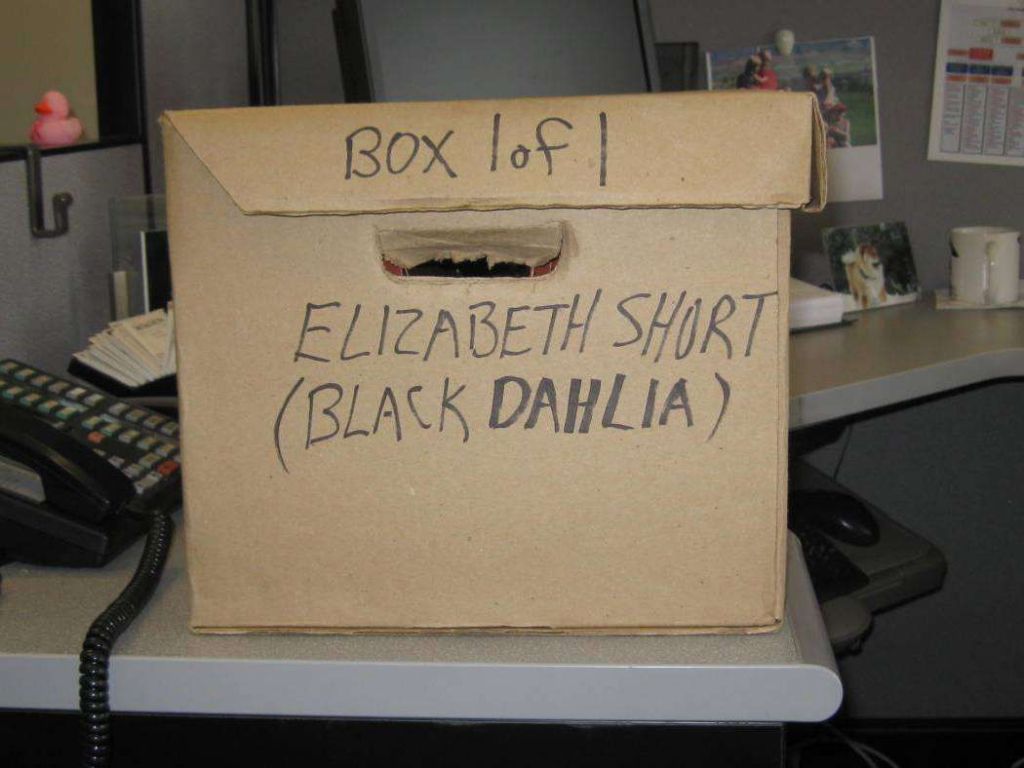 BOX 1 of 1
ELIZABETH SHORT
(BLACK DAHLIA)